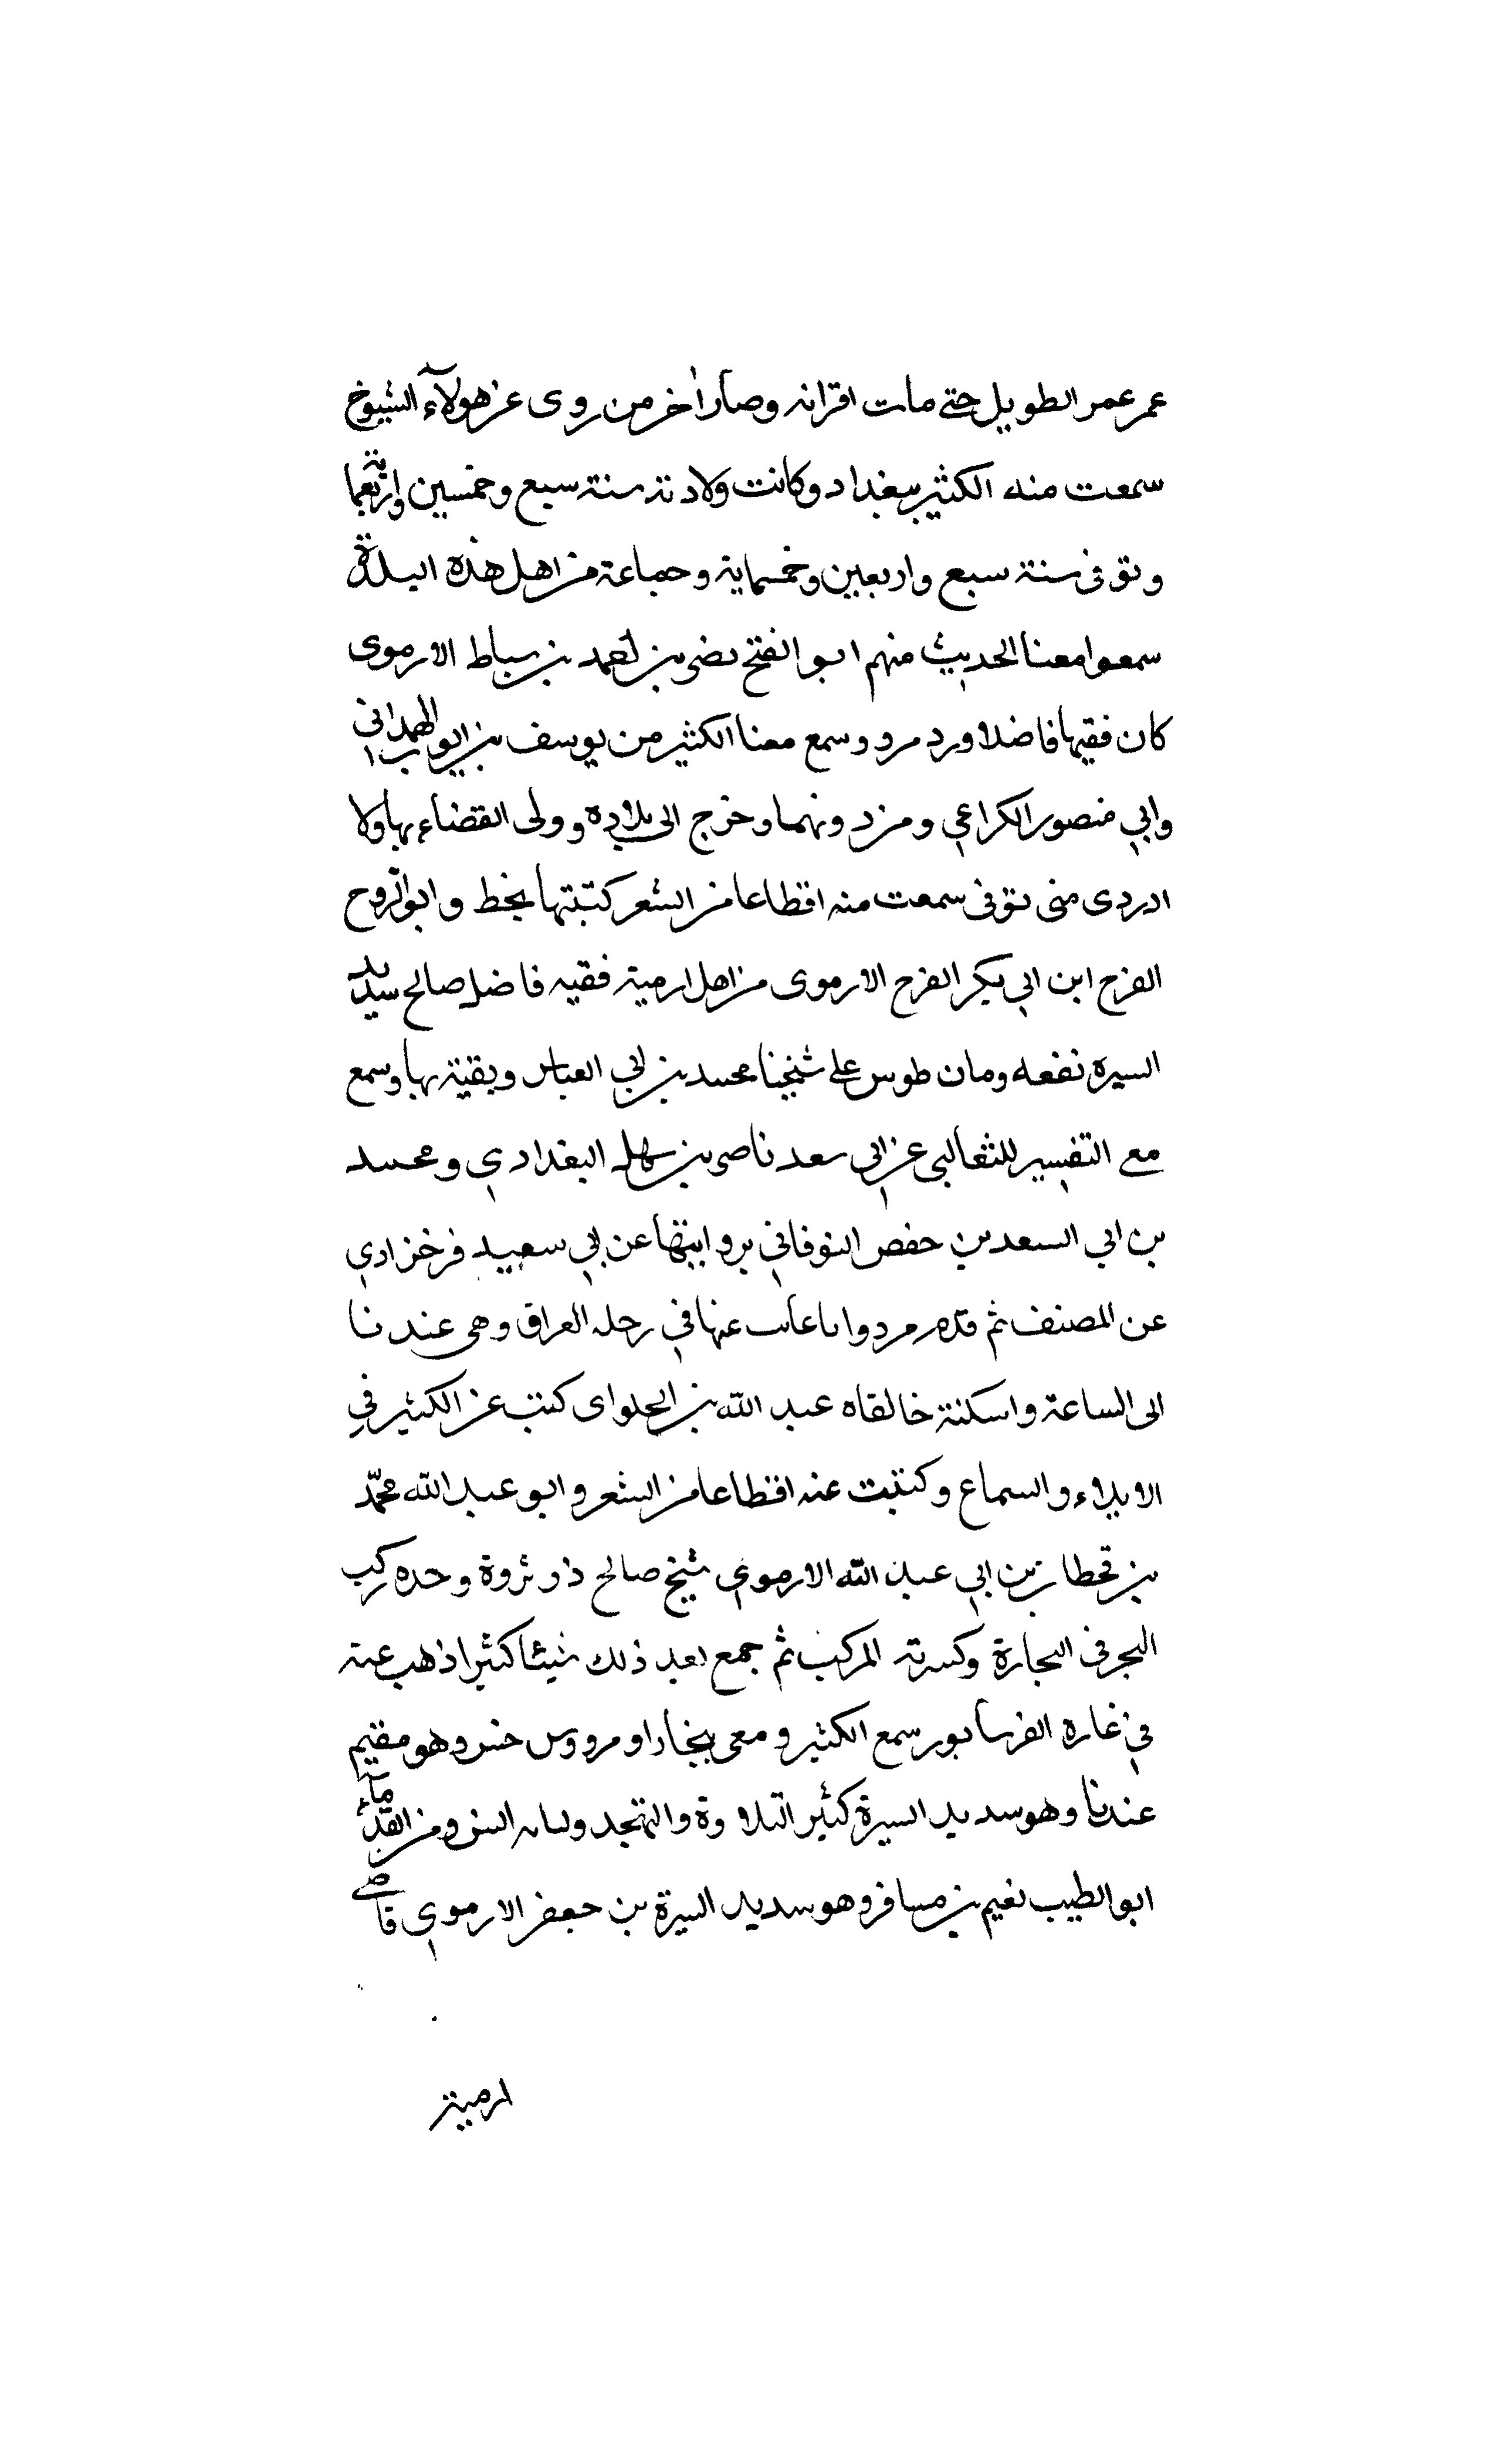 عمر عمر الطويل حتى مات اقرانه وصار اٰخر من روى عن هولآء الشيوخ
سمعت منه الكثير ببغداد وكانت ولادته سنة سبع وخمسين واربعماية
وتوفى سنة سبع واربعين وخمسماية وجماعة من اهل هذه البلدة
سمعوا معنا الحديث منهم ابو الفتح نصر بن بن الارموى
كان فقيها فاضلا ورد مرو وسمع معنا الكثير من يوسف بن ايوب الهمدانى
وابي منصور الكراعي و وخرج الى بلاده وولى القضاء بها ولا
ادرى متى توفى سمعت منه اقطاعا من الشعر كتبتها بخط وابو الروح
الفرج ابن ابي بكر الفرج الارموى من اهل ارمية فقيه فاضل صالح سديد
السيرة نفعه ومان طوس على شيخنا محمد بن ابي العباس وبقية بها وسمع
مع التفسير للثعالبى عن ابي سعد ناصر بن سهل البغدادي ومحمد
بن ابي السعد بن حفص النوقاني بروايتها عن ابي سعيد فرخزادي
عن المصنف ثم قدم مرو عنها في رحله العراق وهى عندنا
الى الساعة واسكنته خالقاه عبد الله بن الحلواى كتب عن الكثير في
الاملاء والسماع وكتبت عنه اقطاعا من الشعر وابو عبد الله محمّد
بن قحطا بن ابي عبد الله الارموي شيخ صالح ذو ثروة وحده ركب
البحر فى التجارة وكسرته المركب ثم جمع بعد ذلك شيئا كثيرا ذهب عنه
في غارة سمع الكثير و معى ببخارا ومرو وهو مقيم
عندنا وهو سديد السيرة كثير التلاوة والتهجد ومن القدمآء
ابو الطيب نعيم بن مسافر وهو سديد السيرة بن جعفر الارموي قاضى
ارمية